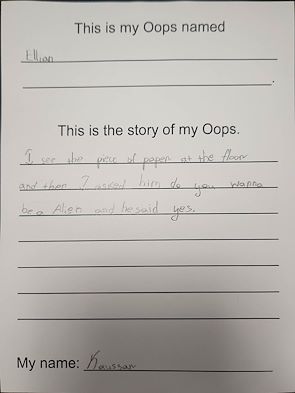 This is my Oops named
Ellian
This is the story of my Oops.
I see the piece of paper at the floor
and then I asked him do you wanna
be a Alien and he said yes.
My name: Kaussan